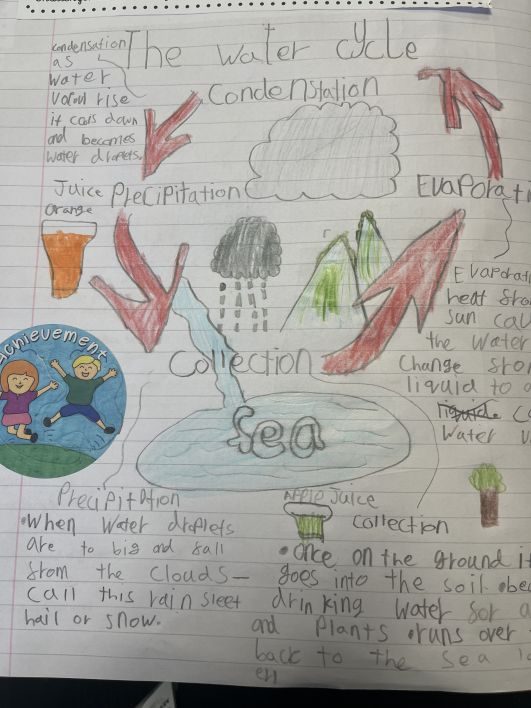 The water cycle
condensation
as
water
rise
it
down
and becomes
water droplets.
Condenstation
Juice
orange
Precipitation
Evaporati
Evaporat
heat from
sun cau
the water
Change from
liquid to
liquid
water v
achievement
Collection
Sea
Precipitation
•When water droplets
are to big and fall
from the clouds—
call this rain sleet
hail or snow.
Apple Juice
Collection
•Once on the ground it
goes into the soil •bec
drinking water for a
and Plants •runs over
back to the sea